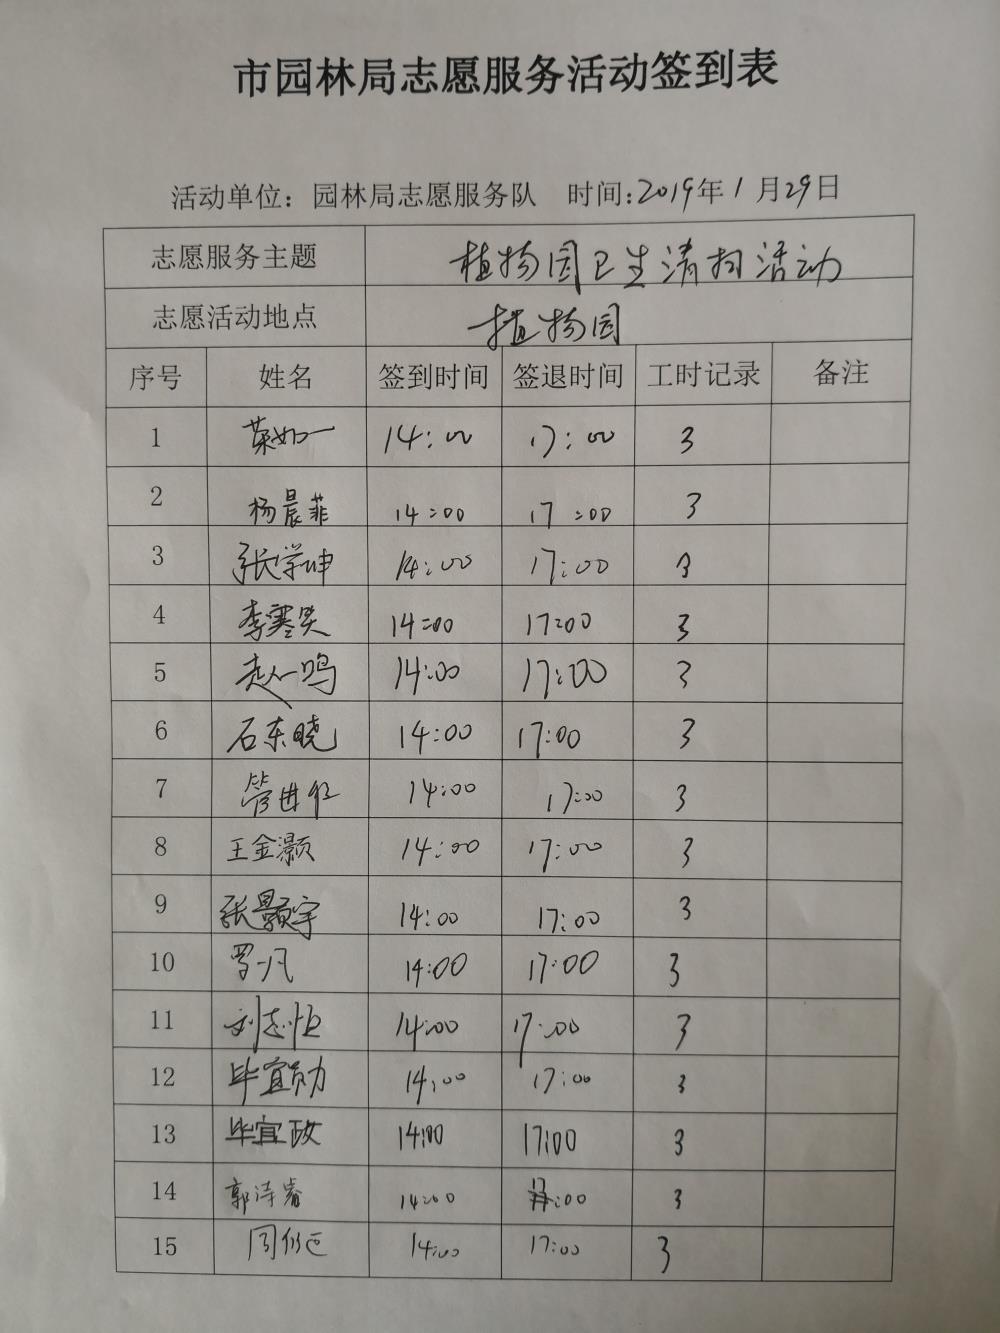 市园林局志愿服务活动签到表
活动单位：园林局志愿服务队 时间:2019年1月29日
志愿服务主题 植物园卫生清扫活动
志愿活动地点 植物园
序号 姓名 签到时间 签退时间 工时记录 备注
1 14:00 17:00 3
2 杨晨菲 14:00 17:00 3
3 张学坤 14:00 17:00 3
4 李寒昊 14:00 17:00 3
5 赵一鸣 14:00 17:00 3
6 石东晓 14:00 17:00 3
7 管进 14:00 17:00 3
8 王金灏 14:00 17:00 3
9 张颢宇 14:00 17:00 3
10 罗一凡 14:00 17:00 3
11 刘志恒 14:00 17:00 3
12 毕宜勋 14:00 17:00 3
13 毕宜政 14:00 17:00 3
14 郭诗睿 14:00 17:00 3
15 周 14:00 17:00 3